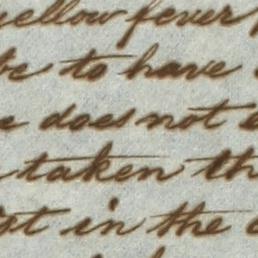 yellow fever
to have
does not
taken th
st in the